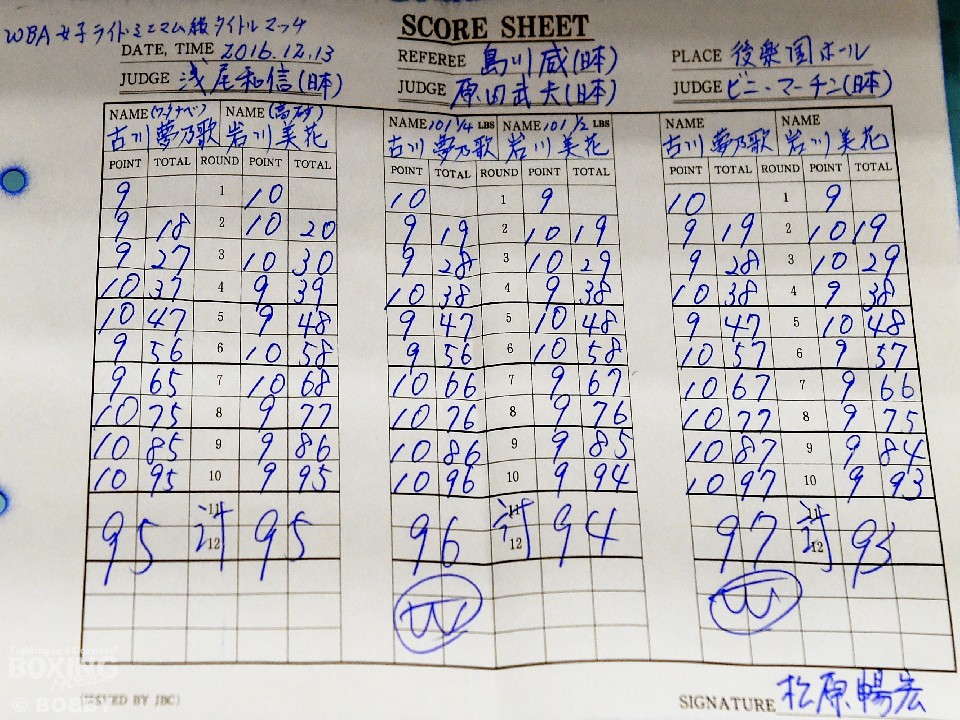 WBA女子ライトミニマム級タイトルマッチ
SCORE SHEET
DATE, TIME 2016.12.13 REFEREE 島川威(日本) PLACE 後楽園ホール
JUDGE 浅尾和信(日本) JUDGE 原田武夫(日本) JUDGE ビニ・マーチン(日本)
NAME(ワタナベ) NAME(高砂) NAME 101 1/4 LBS NAME 101 1/2 LBS NAME NAME
古川夢乃歌 岩川美花 古川夢乃歌 岩川美花 古川夢乃歌 岩川美花
POINT TOTAL ROUND POINT TOTAL POINT TOTAL ROUND POINT TOTAL POINT TOTAL ROUND POINT TOTAL
9 1 10 10 1 9 10 1 9
9 18 2 10 20 9 19 2 10 19 9 19 2 10 19
9 27 3 10 30 9 28 3 10 29 9 28 3 10 29
10 37 4 9 39 10 38 4 9 38 10 38 4 9 38
10 47 5 9 48 9 47 5 10 48 9 47 5 10 48
9 56 6 10 58 9 56 6 10 58 10 57 6 9 57
9 65 7 10 68 10 66 7 9 67 10 67 7 9 66
10 75 8 9 77 10 76 8 9 76 10 77 8 9 75
10 85 9 9 86 10 86 9 9 85 10 87 9 9 84
10 95 10 9 95 10 96 10 9 94 10 97 10 9 93
11 11 11
95 計 95 96 計 94 97 計 93
12 12 12
W W
BOXING
© BOBBY
(ISSUED BY JBC)
SIGNATURE 松原暢宏